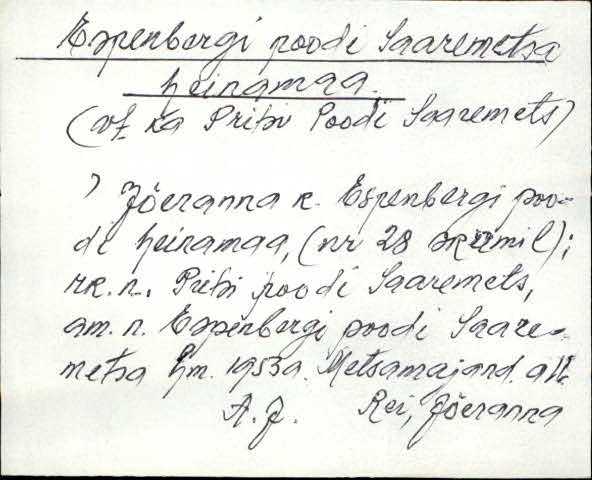 Espenbergi poodi Saaremetsa
heinamaa.
(vt ka Pritsi Poodi Saaremets)
) Jõeranna k. Espenbergi poo-
di heinamaa, (nr 28 skeemil);
rk. n. Pritsi poodi Saaremets,
am. n. Espenbergi poodi Saare-
metsa hm. 1953a. Metsamajand. all.
A. J. Rei, Jõeranna